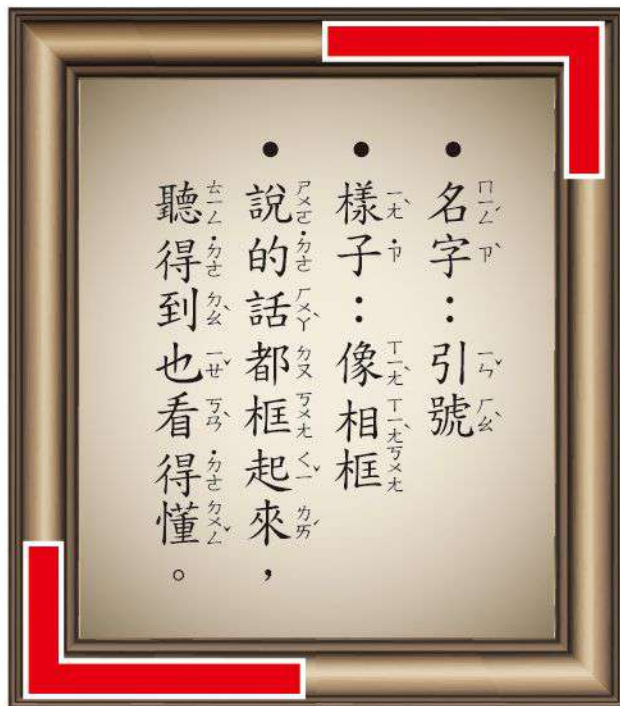 •名字：引號
•樣子：像相框
•說的話都框起來，
聽得到也看得懂。